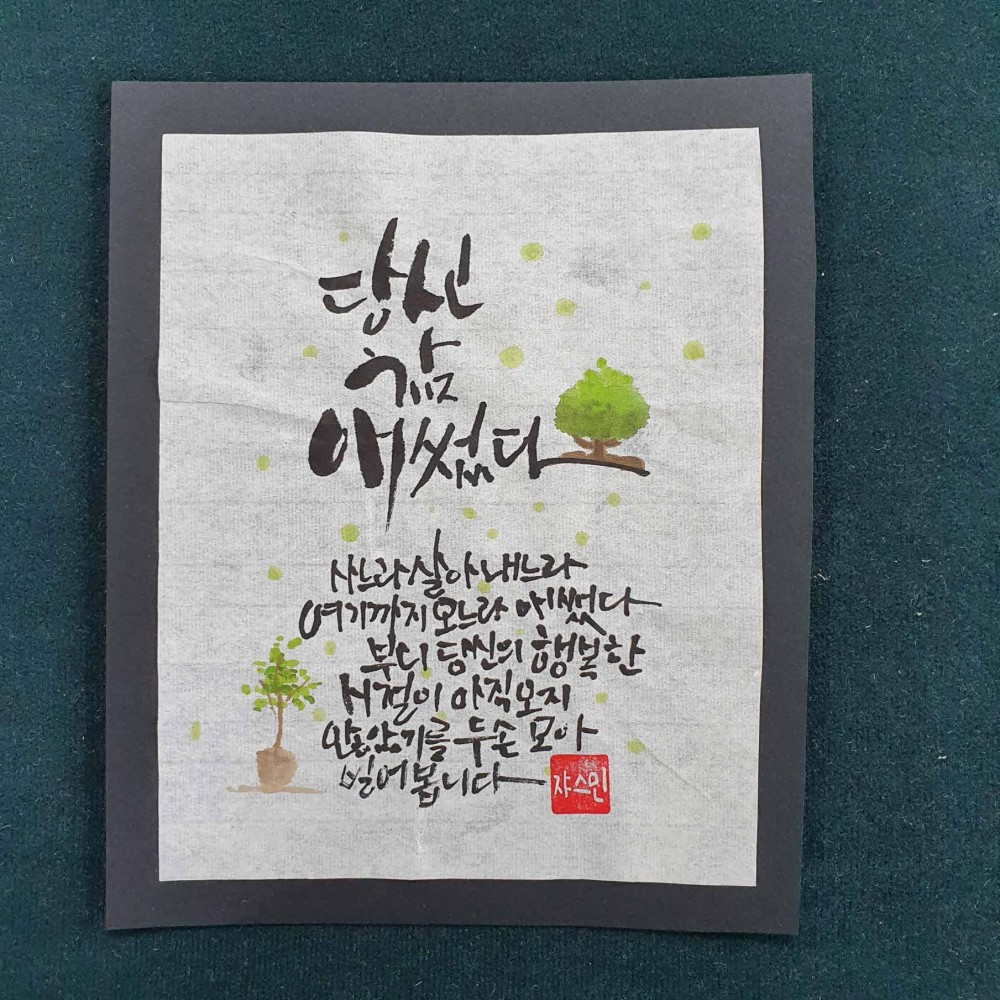 당신
참
애썼다
사느라 살아내느라
여기까지 오느라 애썼다
부디 당신의 행복한
시절이 아직 오지
않았기를 두 손 모아
빌어봅니다
쟈스민